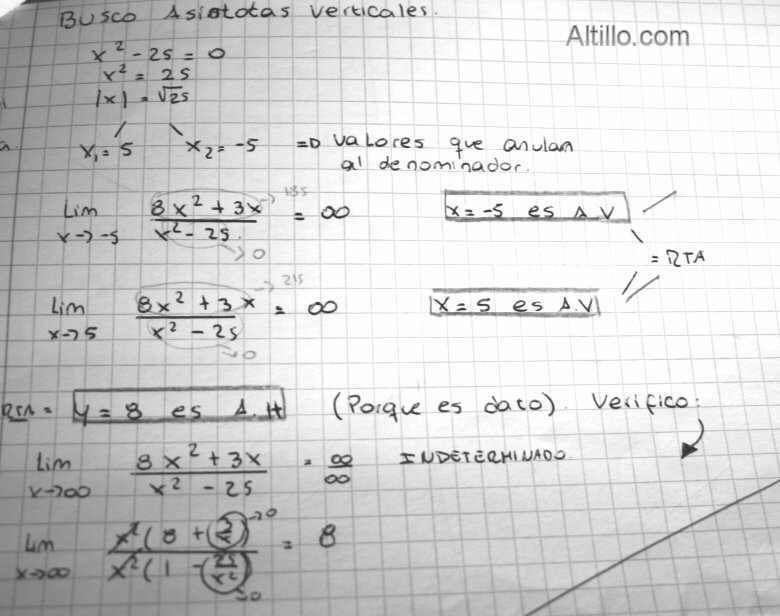 Busco Asistotas verticales.
Altillo.com
x² - 25 = 0
x² = 25
|x| = √25
x₁ = 5 x₂ = -5 => valores que anulan
al denominador.
Lim x→-5 (8x² + 3x)/(x² - 25) = ∞ x = -5 es A.V
→ 185
→ 0
= RTA
Lim x→5 (8x² + 3x)/(x² - 25) = ∞ x = 5 es A.V
→ 215
→ 0
RTA = y = 8 es A.H (Porque es dato). Verifico:
Lim x→∞ (8x² + 3x)/(x² - 25) = ∞/∞ INDETERMINADO
Lim x→∞ x²(8 + (3/x)→0 / x²(1 - (25/x²)→0 = 8